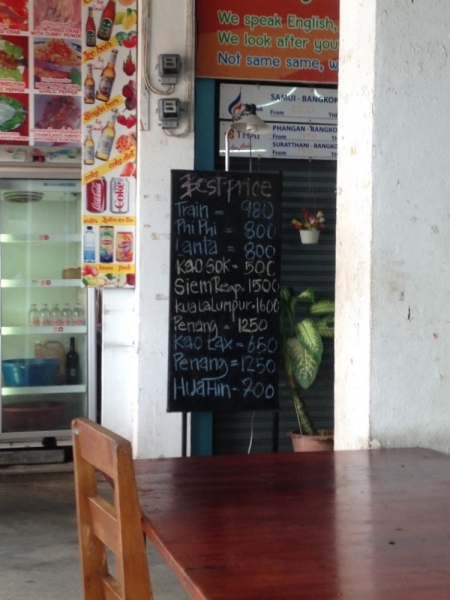 We speak English,
We look after you
Not same same, w
SAMUI - BANGKOK
THAI
PHANGAN - BANGKOK
From
SURATTHANI - BANGKOK
From
Best price
Train = 980
Phi Phi = 800
Lanta = 800
Kao Sok = 500
Siem Reap. 1500
Kuala Lumpur - 1600
Penang = 1250
Kao Lax = 650
Penang = 1250
Hua Hin - 700
Coke